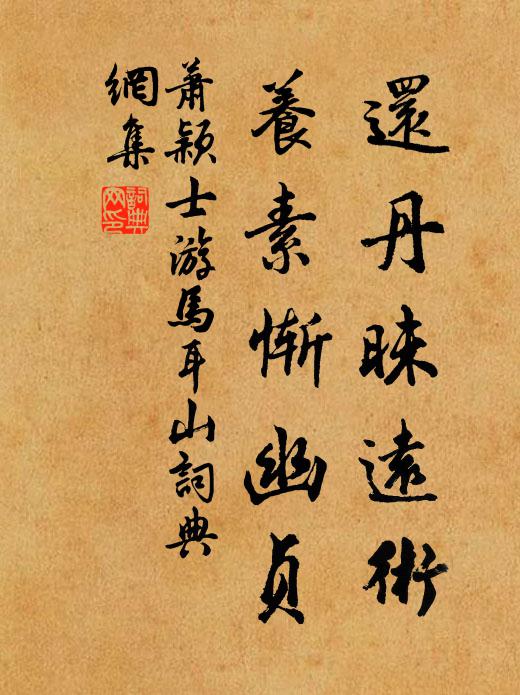 還丹昧遠術
養素慚幽貞
蕭穎士游馬耳山詞典
網集
詞典网印